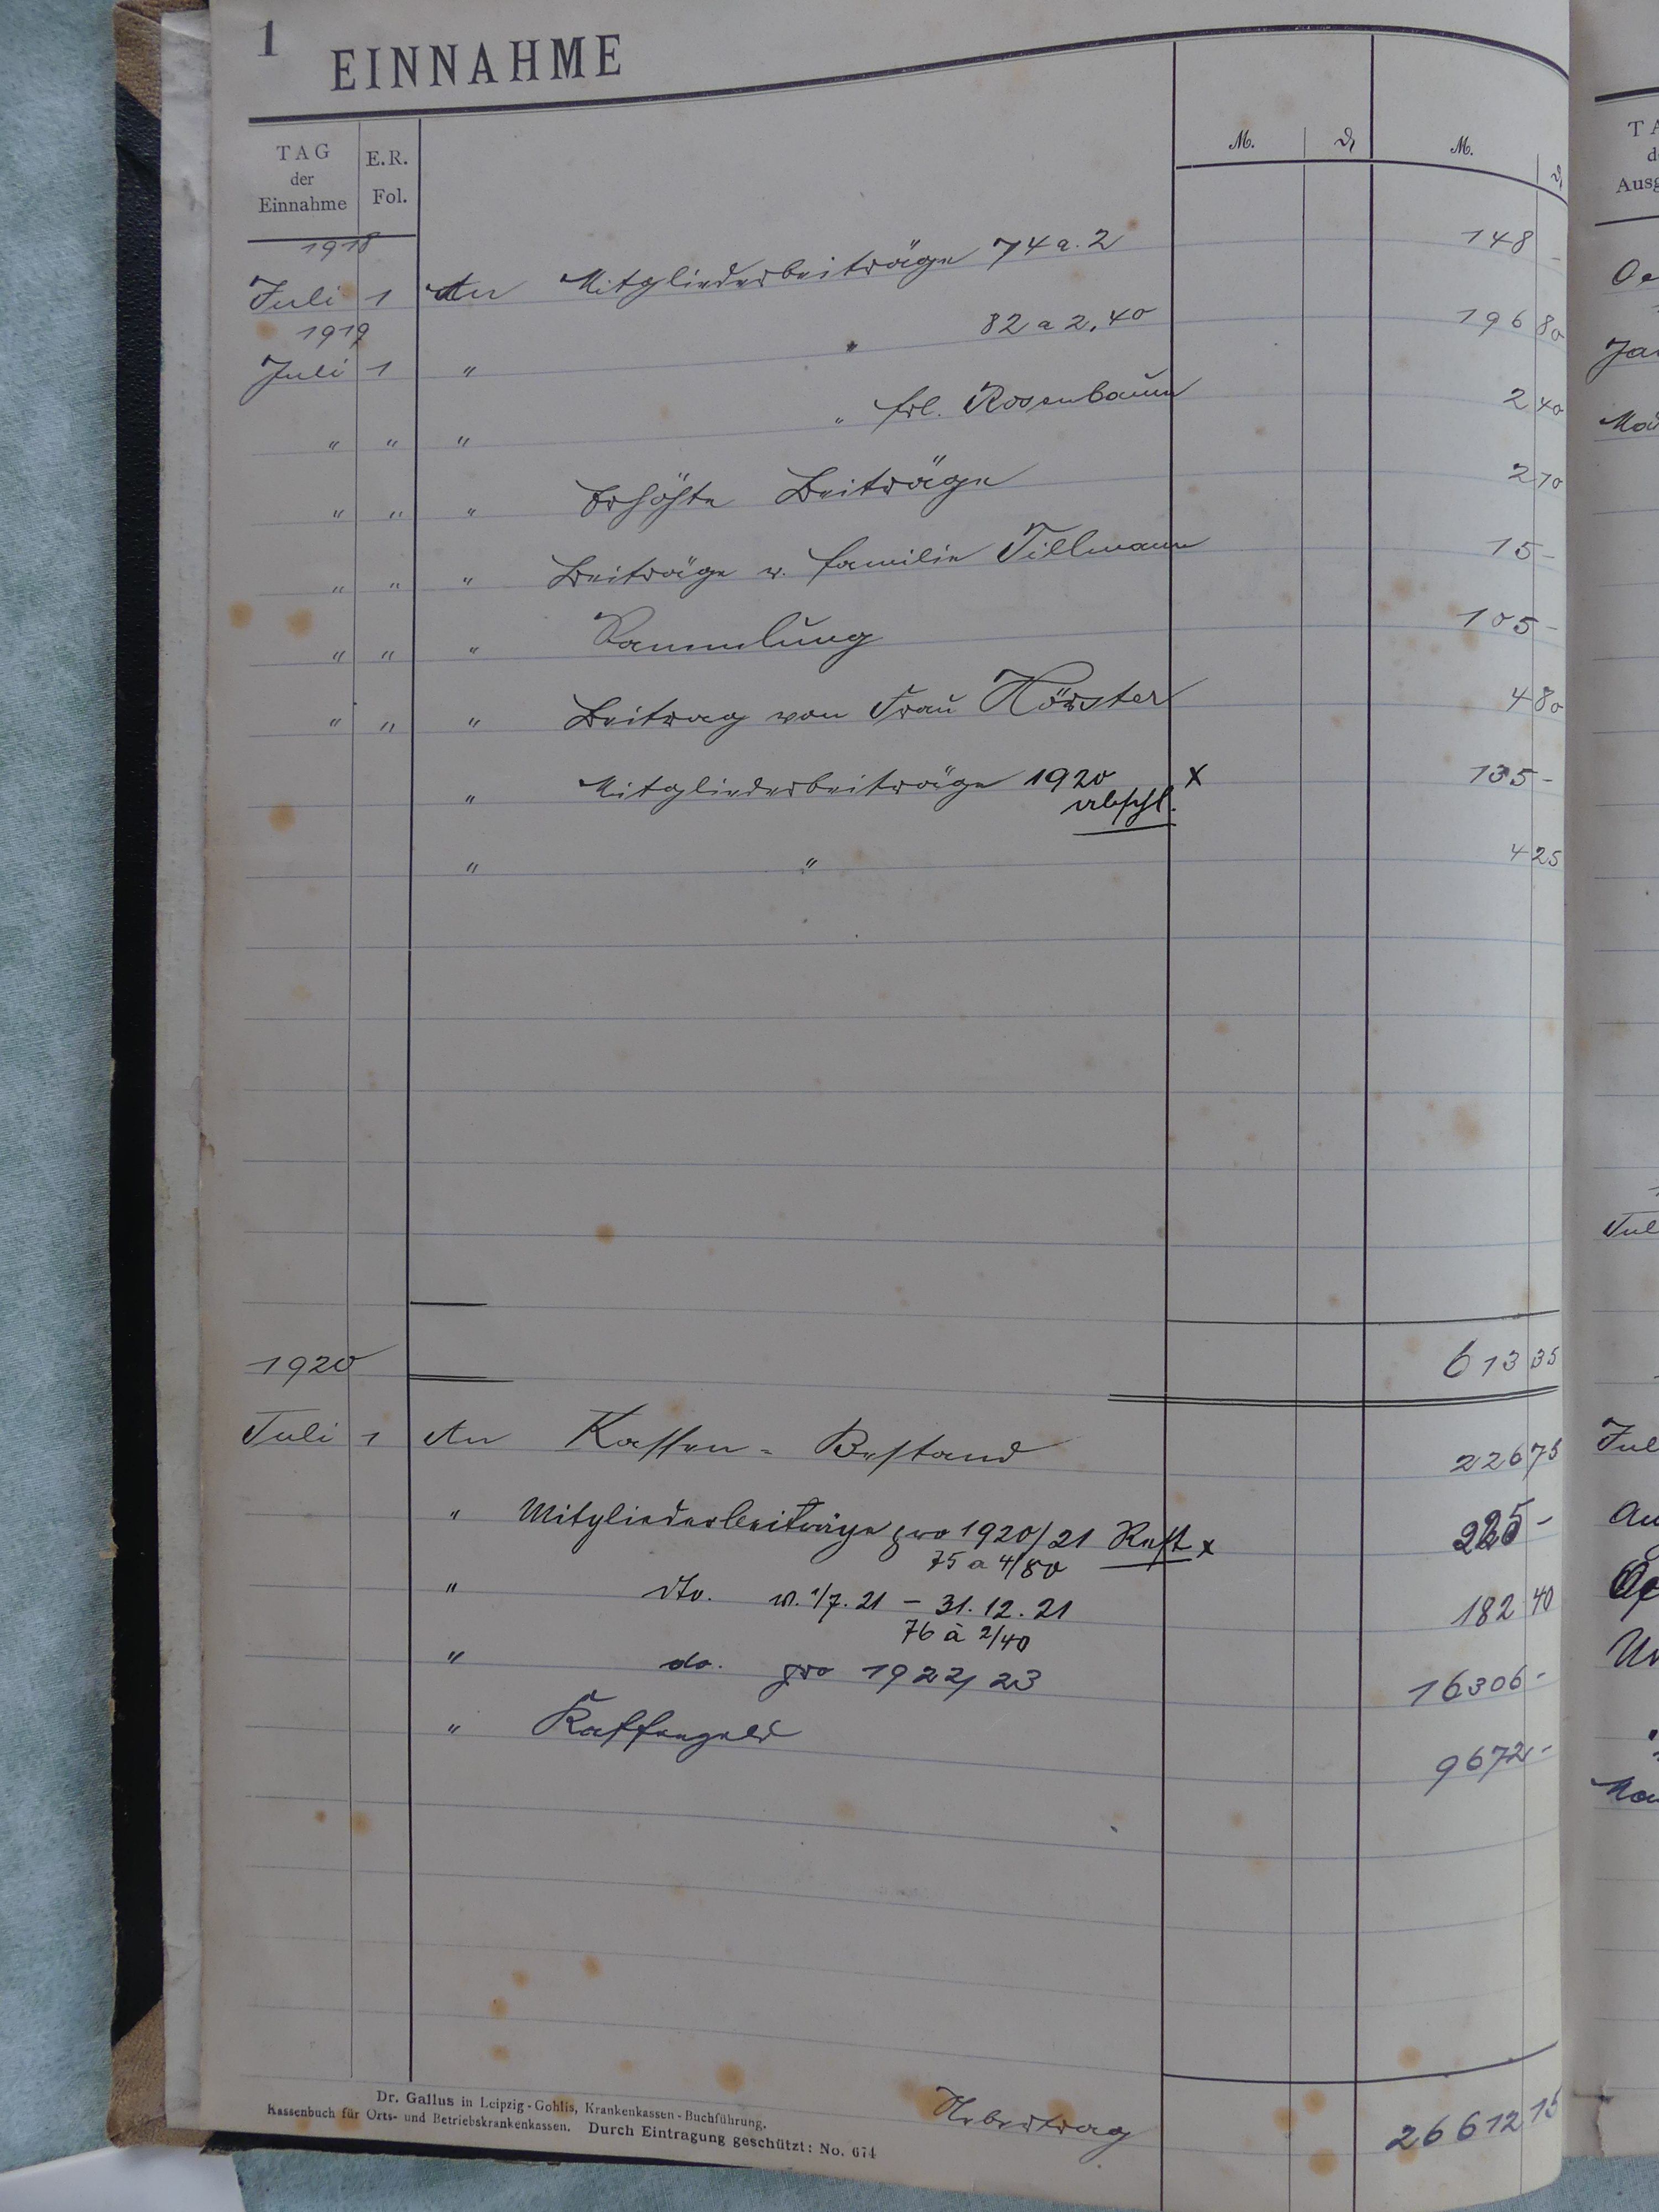 1 EINNAHME
TAG der Einnahme E.R. Fol. M. ₰ M. ₰
1918
Juli 1 An Mitgliederbeiträge 74 a. 2 148 -
1919
Juli 1 " " 82 a 2,40 196 80
" " " " Frl. Rosenbaum 2 40
" " " Erhöhte Beiträge 2 10
" " " Beiträge v. Familie Tillmann 15 -
" " " Sammlung 105 -
" " " Beitrag von Frau Hörster 4 80
" Mitgliederbeiträge 1920 x 135 -
abschl.
" " 4 25
1920 613 35
Juli 1 An Kassen = Bestand 226 75
" Mitgliederbeiträge pro 1920/21 Rest x 225 -
75 a 4/80
" dto. v. 1/7. 21 - 31. 12. 21 182 40
76 à 2/40
" do. pro 1922/23 16306 -
" Kaffeegeld 9672 -
Uebertrag 26612 15
Dr. Gallus in Leipzig-Gohlis, Krankenkassen-Buchführung.
Kassenbuch für Orts- und Betriebskrankenkassen. Durch Eintragung geschützt: No. 674
Ausg
Jul